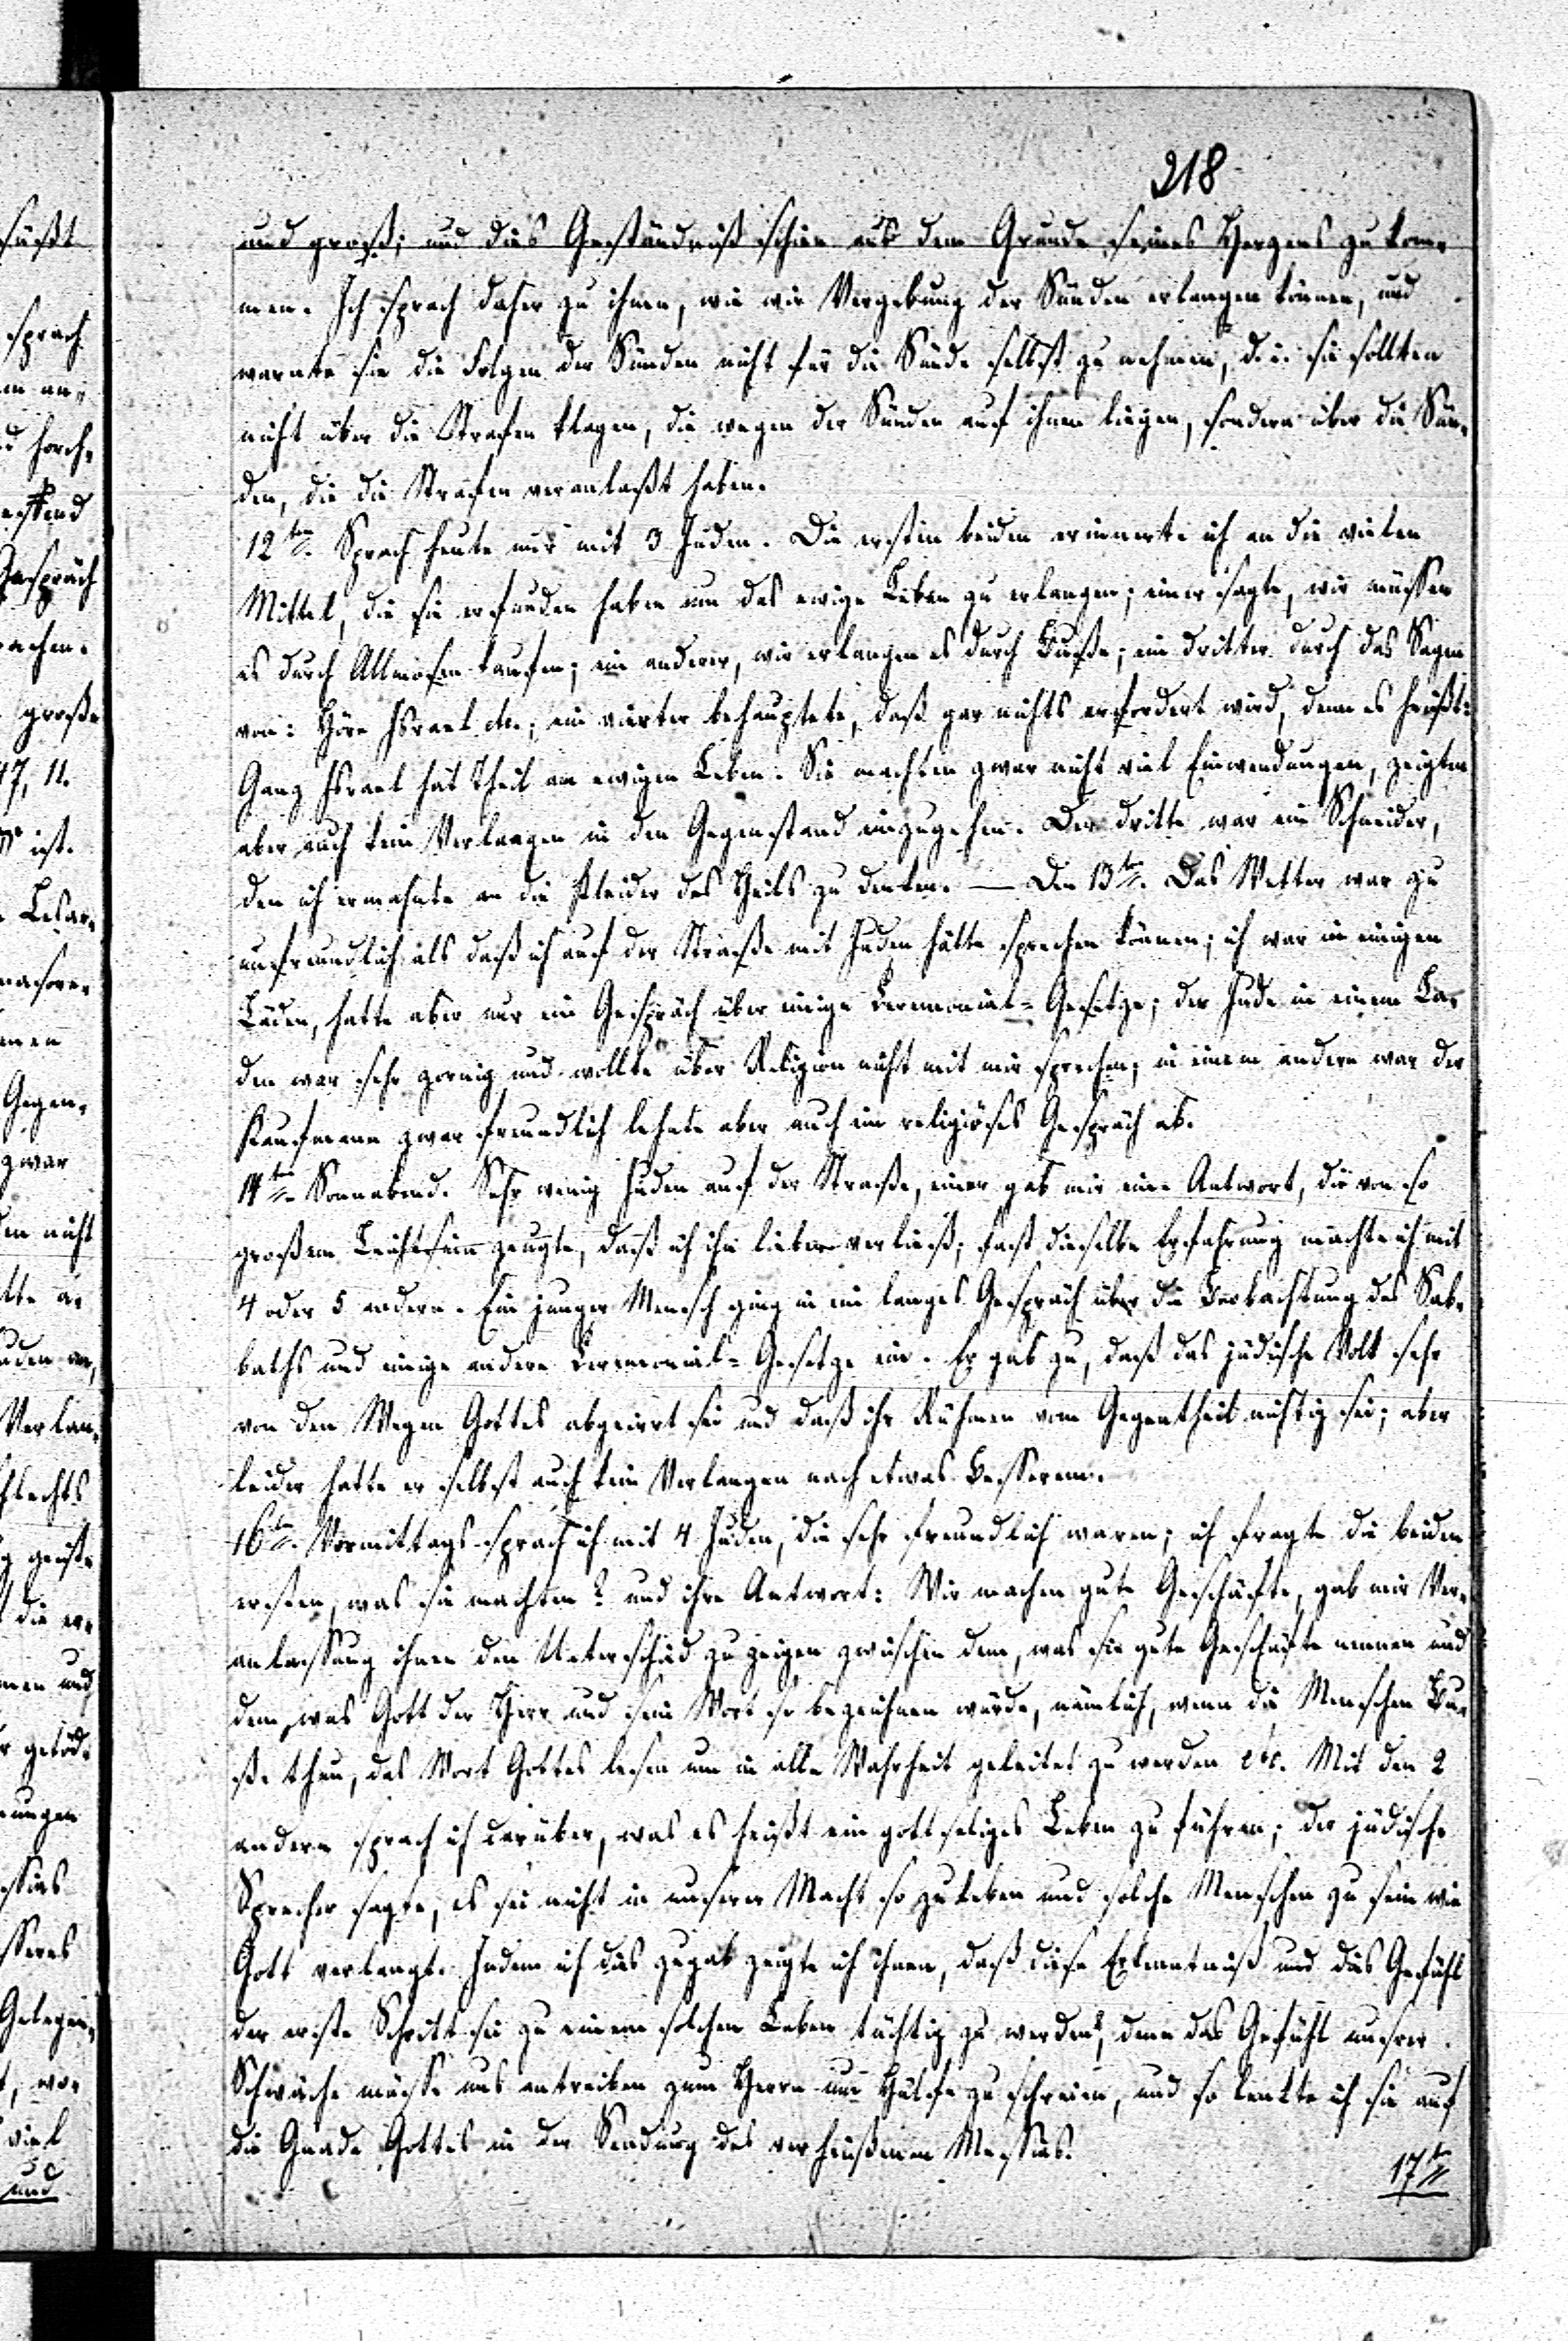 218
und groß; und dies Geständniß schien aus dem Grunde seines Herzens zu kom-
men. Ich sprach daher zu ihnen, wie wir Vergebung der Sünden erlangen können, und
warnte sie die Folgen der Sünden nicht für die Sünde selbst zu nehmen, d. i. sie sollten
nicht über die Strafen klagen, die wegen der Sünden auf ihnen liegen, sondern über die Sün-
den, die die Strafen veranlaßt haben.
12ten. Sprach heute nur mit 3 Juden. Die ersten beiden erinnerte ich an die vielen
Mittel, die sie erfunden haben um das ewige Leben zu erlangen; einer sagte, wir müssen
es durch Allmosen kaufen; ein anderer, wir erlangen es durch Buße; ein dritter durch das Sagen
von: Höre Israel etc.; ein vierter behauptete, daß gar nichts erfordert wird, denn es heißt:
Ganz Israel hat Theil am ewigen Leben. Sie machten zwar nicht viel Einwendungen, zeigten
aber auch kein Verlangen in den Gegenstand einzugehen. Der dritte war ein Schneider,
den ich ermahnte an die Kleider des Heils zu denken. — Den 13ten. Das Wetter war zu
unfreundlich als daß ich auf der Straße mit Juden hätte sprechen können; ich war in einigen
Läden, hatte aber nur ein Gespräch über einige Ceremonial-Gesetze; der Jude in einem La-
den war sehr zornig und wollte über Religion nicht mit mir sprechen; in einem andern war der
Kaufmann zwar freundlich lehnte aber auch ein religiöses Gespräch ab.
14ten Sonnabend. Sehr wenig Juden auf der Straße, einer gab mir eine Antwort, die von so
großem Leichtsinn zeugte, daß ich ihn lieber verließ; fast dieselbe Erfahrung machte ich mit
4 oder 5 andern. Ein junger Mensch ging in ein langes Gespräch über die Beobachtung des Sab-
baths und einige andere Ceremonial-Gesetze ein. Er gab zu, daß das jüdische Volk sehr
von den Wegen Gottes abgeirrt sei und daß ihr Rühmen vom Gegentheil nichtig sei; aber
leider hatte er selbst auch kein Verlangen nach etwas Besserem.
16ten. Vormittags sprach ich mit 4 Juden, die sehr freundlich waren; ich fragte die beiden
ersten, was sie machten? und ihre Antwort: Wir machen gute Geschäfte, gab mir Ver-
anlassung ihnen den Unterschied zu zeigen zwischen dem, was sie gute Geschäfte nennen und
dem, was Gott der Herr und sein Wort so bezeichnen würde, nämlich, wenn die Menschen Bu-
ße thun, das Wort Gottes lesen um in alle Wahrheit geleitet zu werden etc. Mit den 2
andern sprach ich darüber, was es heißt ein gottseliges Leben zu führen; der jüdische
Sprecher sagte, es sei nicht in unserer Macht so zu leben und solche Menschen zu sein wie
Gott verlangt. Indem ich dies zugab zeigte ich ihnen, daß diese Erkenntniß und dies Gefühl
der erste Schritt sei zu einem solchen Leben tüchtig zu werden, denn das Gefühl unsrer
Schwäche müsse uns antreiben zum Herrn um Hülfe zu schreien, und so lenkte ich sie auf
die Gnade Gottes in der Sendung des verheißenen Messias.
17ten